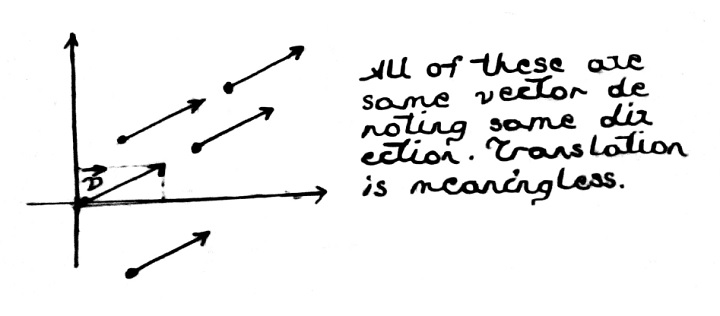 All of these are
same vector de
noting same dir
ection. Translation
is meaningless.